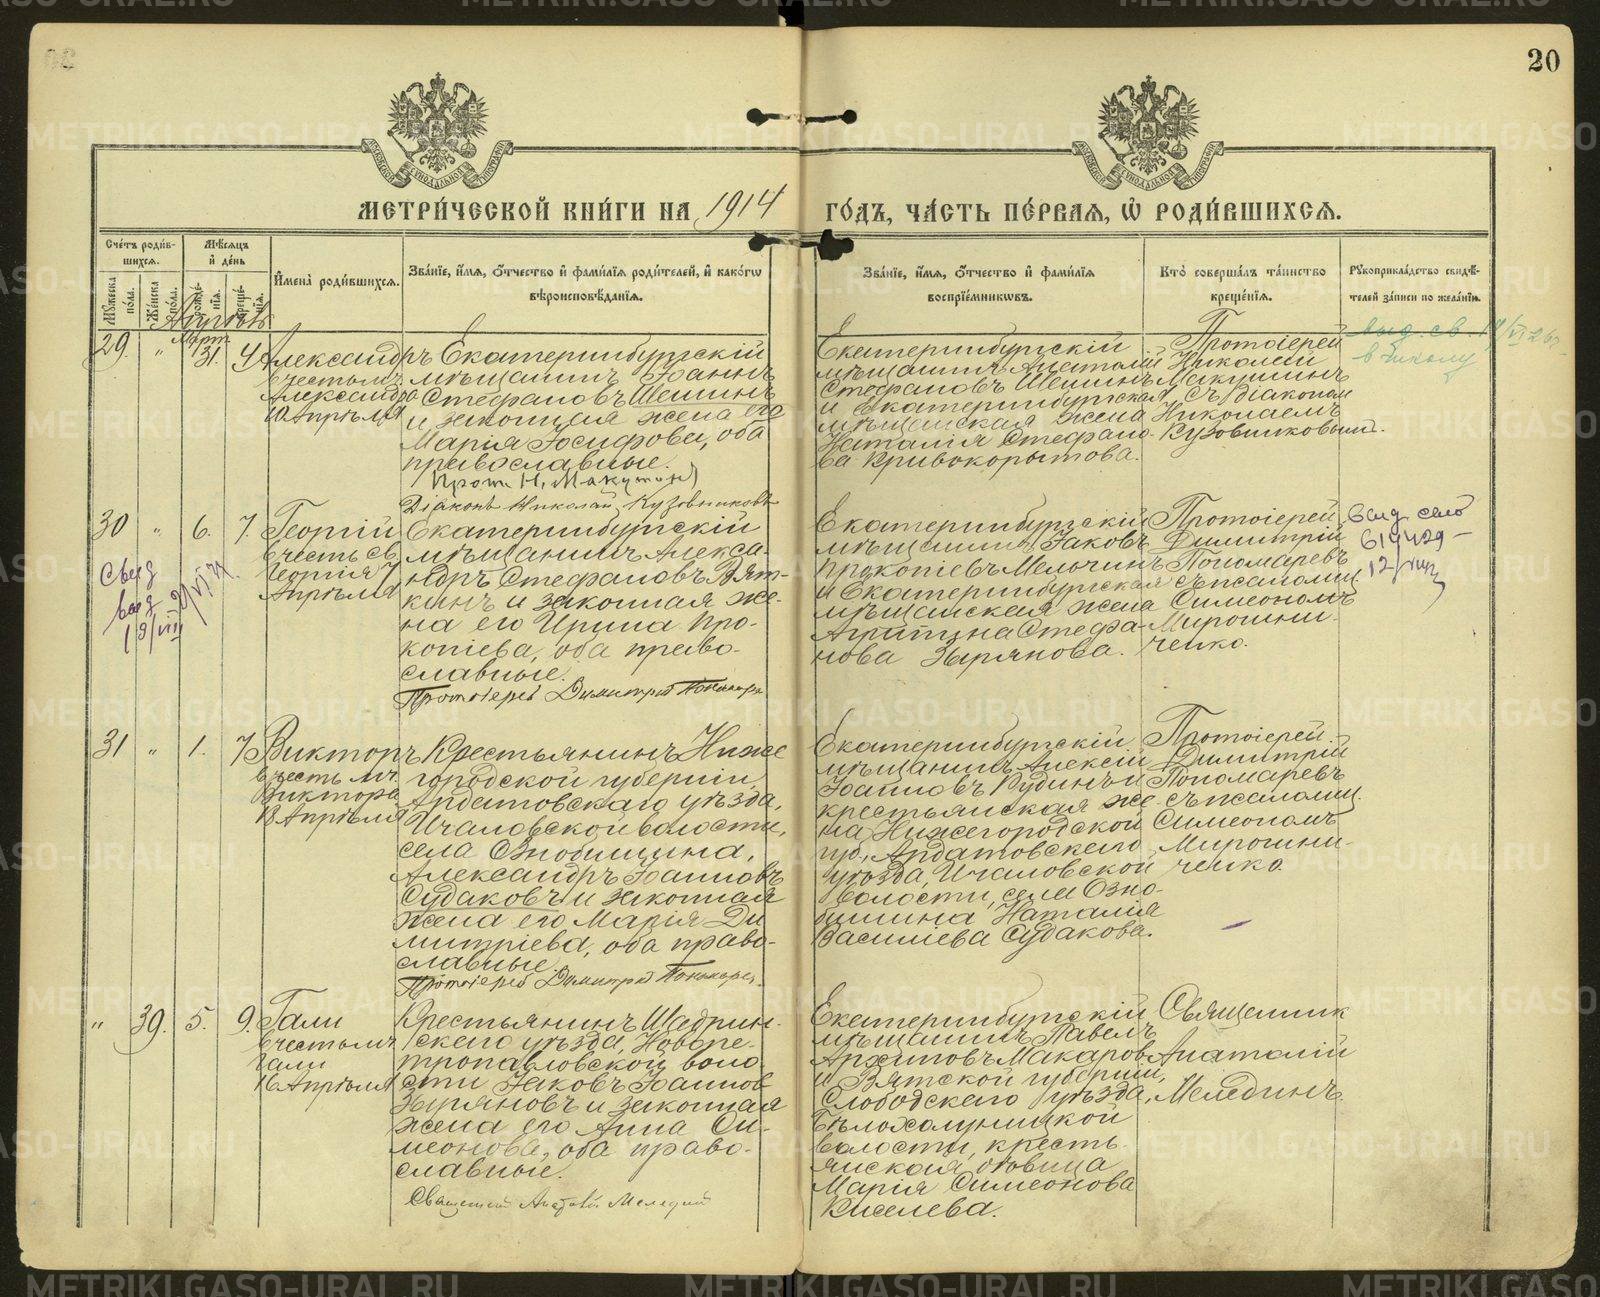 20
МЕТРИ́ЧЕСКОЙ КНИ́ГИ НА 1914 ГО́ДЪ, ЧА́СТЬ ПЕ́РВАЯ, Ѡ РОДИ́ВШИХСЯ.
Сче́тъ роди́в-
шихся.
Мѣ́сяцъ
и҆ де́нь
Мꙋ́жеска
по́ла.
Же́нска
по́ла.
рожде́-
нїя.
креще́-
нїя.
И҆мена̀ роди́вшихся.
Зва́нїе, и҆́мя, ѻ҆́тчество и҆ фами́лїя роди́телей, и҆ како́гѡ
вѣроисповѣ́данїя.
Зва́нїе, и҆́мя, ѻ҆́тчество и҆ фами́лїя
воспрїе́мникѡвъ.
Кто̀ соверша́лъ та́инство
креще́нїя.
Рꙋкоприкла́дство свидѣ́-
телей за́писи по жела́нїю.
Апрѣль
Март
29. " 31. 4
Александръ
въ честь мч.
Александра
10 Апрѣля
Екатеринбургскій
мѣщанинъ Іоаннъ
Стефановъ Шеинъ
и законная жена его
Марія Іосифова, оба
православные.
Прот. Н. Макушин
Діаконъ Николай Кузовниковъ
Екатеринбургскій
мѣщанинъ Анатолій
Стефановъ Шеинъ
и Екатеринбургская
мѣщанская жена
Наталія Стефано-
ва Кривокорытова.
Протоіерей
Николай
Макушинъ
съ діаконом
Николаемъ
Кузовниковымъ.
выд. св.
в школу
30 " 6. 7.
Георгій
въ честь св.
Георгія
Апрѣля
Екатеринбургскій
мѣщанинъ Алекса-
ндръ Стефановъ Вят-
кинъ и законная же-
на его Ирина Про-
копіева, оба право-
славные.
Протоіерей Димитрій Пономарев
Екатеринбургскій
мѣщанинъ Іаковъ
Прокопіевъ Мелочинъ
и Екатеринбургская
мѣщанская жена
Агриппина Стефа-
нова Зырянова.
Протоіерей
Димитрій
Пономаревъ
съ псаломщ.
Симеономъ
Мирошни-
ченко.
31 " 1. 7.
Викторъ
въ честь мч.
Виктора
18 Апрѣля
Крестьянинъ Ниже
городской губерніи,
Ардатовскаго уѣзда,
Ичаловской волости,
села Ознобишина,
Александръ Іоанновъ
Судаковъ и законная
жена его Марія Ди
митріева, оба право-
славные.
Протоіерей Димитрій Пономарев
Екатеринбургскій
мѣщанинъ Алексій
Іоанновъ Рудинъ и
крестьянская же-
на Нижегородской
губ., Ардатовскаго
уѣзда, Ичаловской
волости, села Озно-
бишина Наталія
Василіева Судакова.
Протоіерей
Димитрій
Пономаревъ
съ псаломщ.
Симеономъ
Мирошни-
ченко.
" 39. 5. 9.
Гали
въ честь мч.
Гали
16 Апрѣля
Крестьянинъ Шадрин-
скаго уѣзда, Новопе-
тропавловской воло-
сти Іаковъ Іоаннов
Зыряновъ и законная
жена его Анна Си-
меонова, оба право-
славные.
Священник Анатолій Мелединъ
Екатеринбургскій
мѣщанинъ Павелъ
Архиповъ Макаровъ
и Вятской губерніи,
Слободскаго уѣзда,
Бѣлохолуницкой
волости, кресть-
янская вдовица
Марія Симеонова
Киселева.
Священник
Анатолій
Мелединъ.